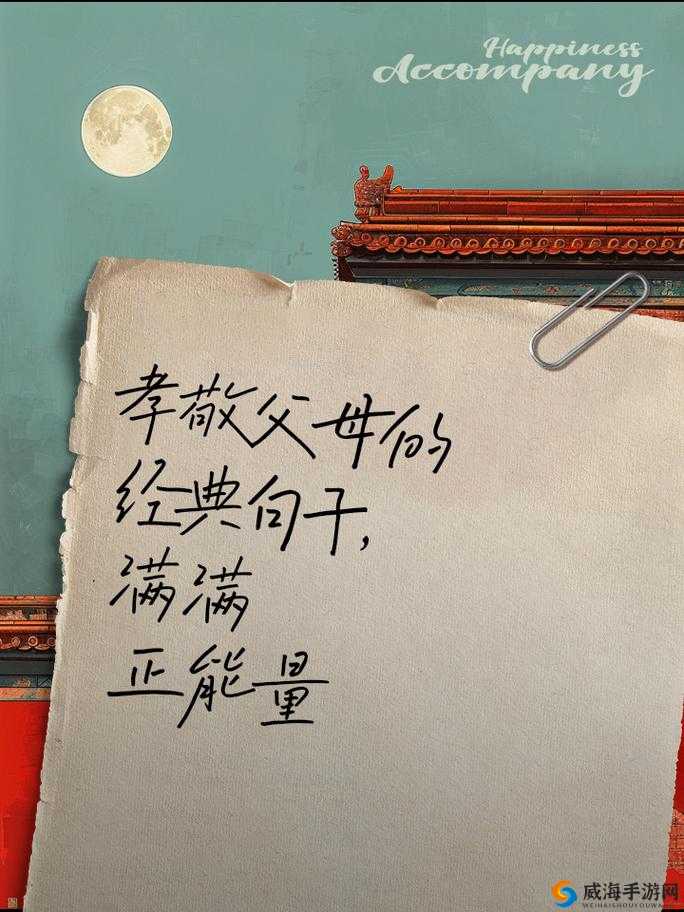 Happiness
Accompany
孝敬父母的
经典句子,
满满
正能量
威海手游网
WEIHAISHOUYOUWANG